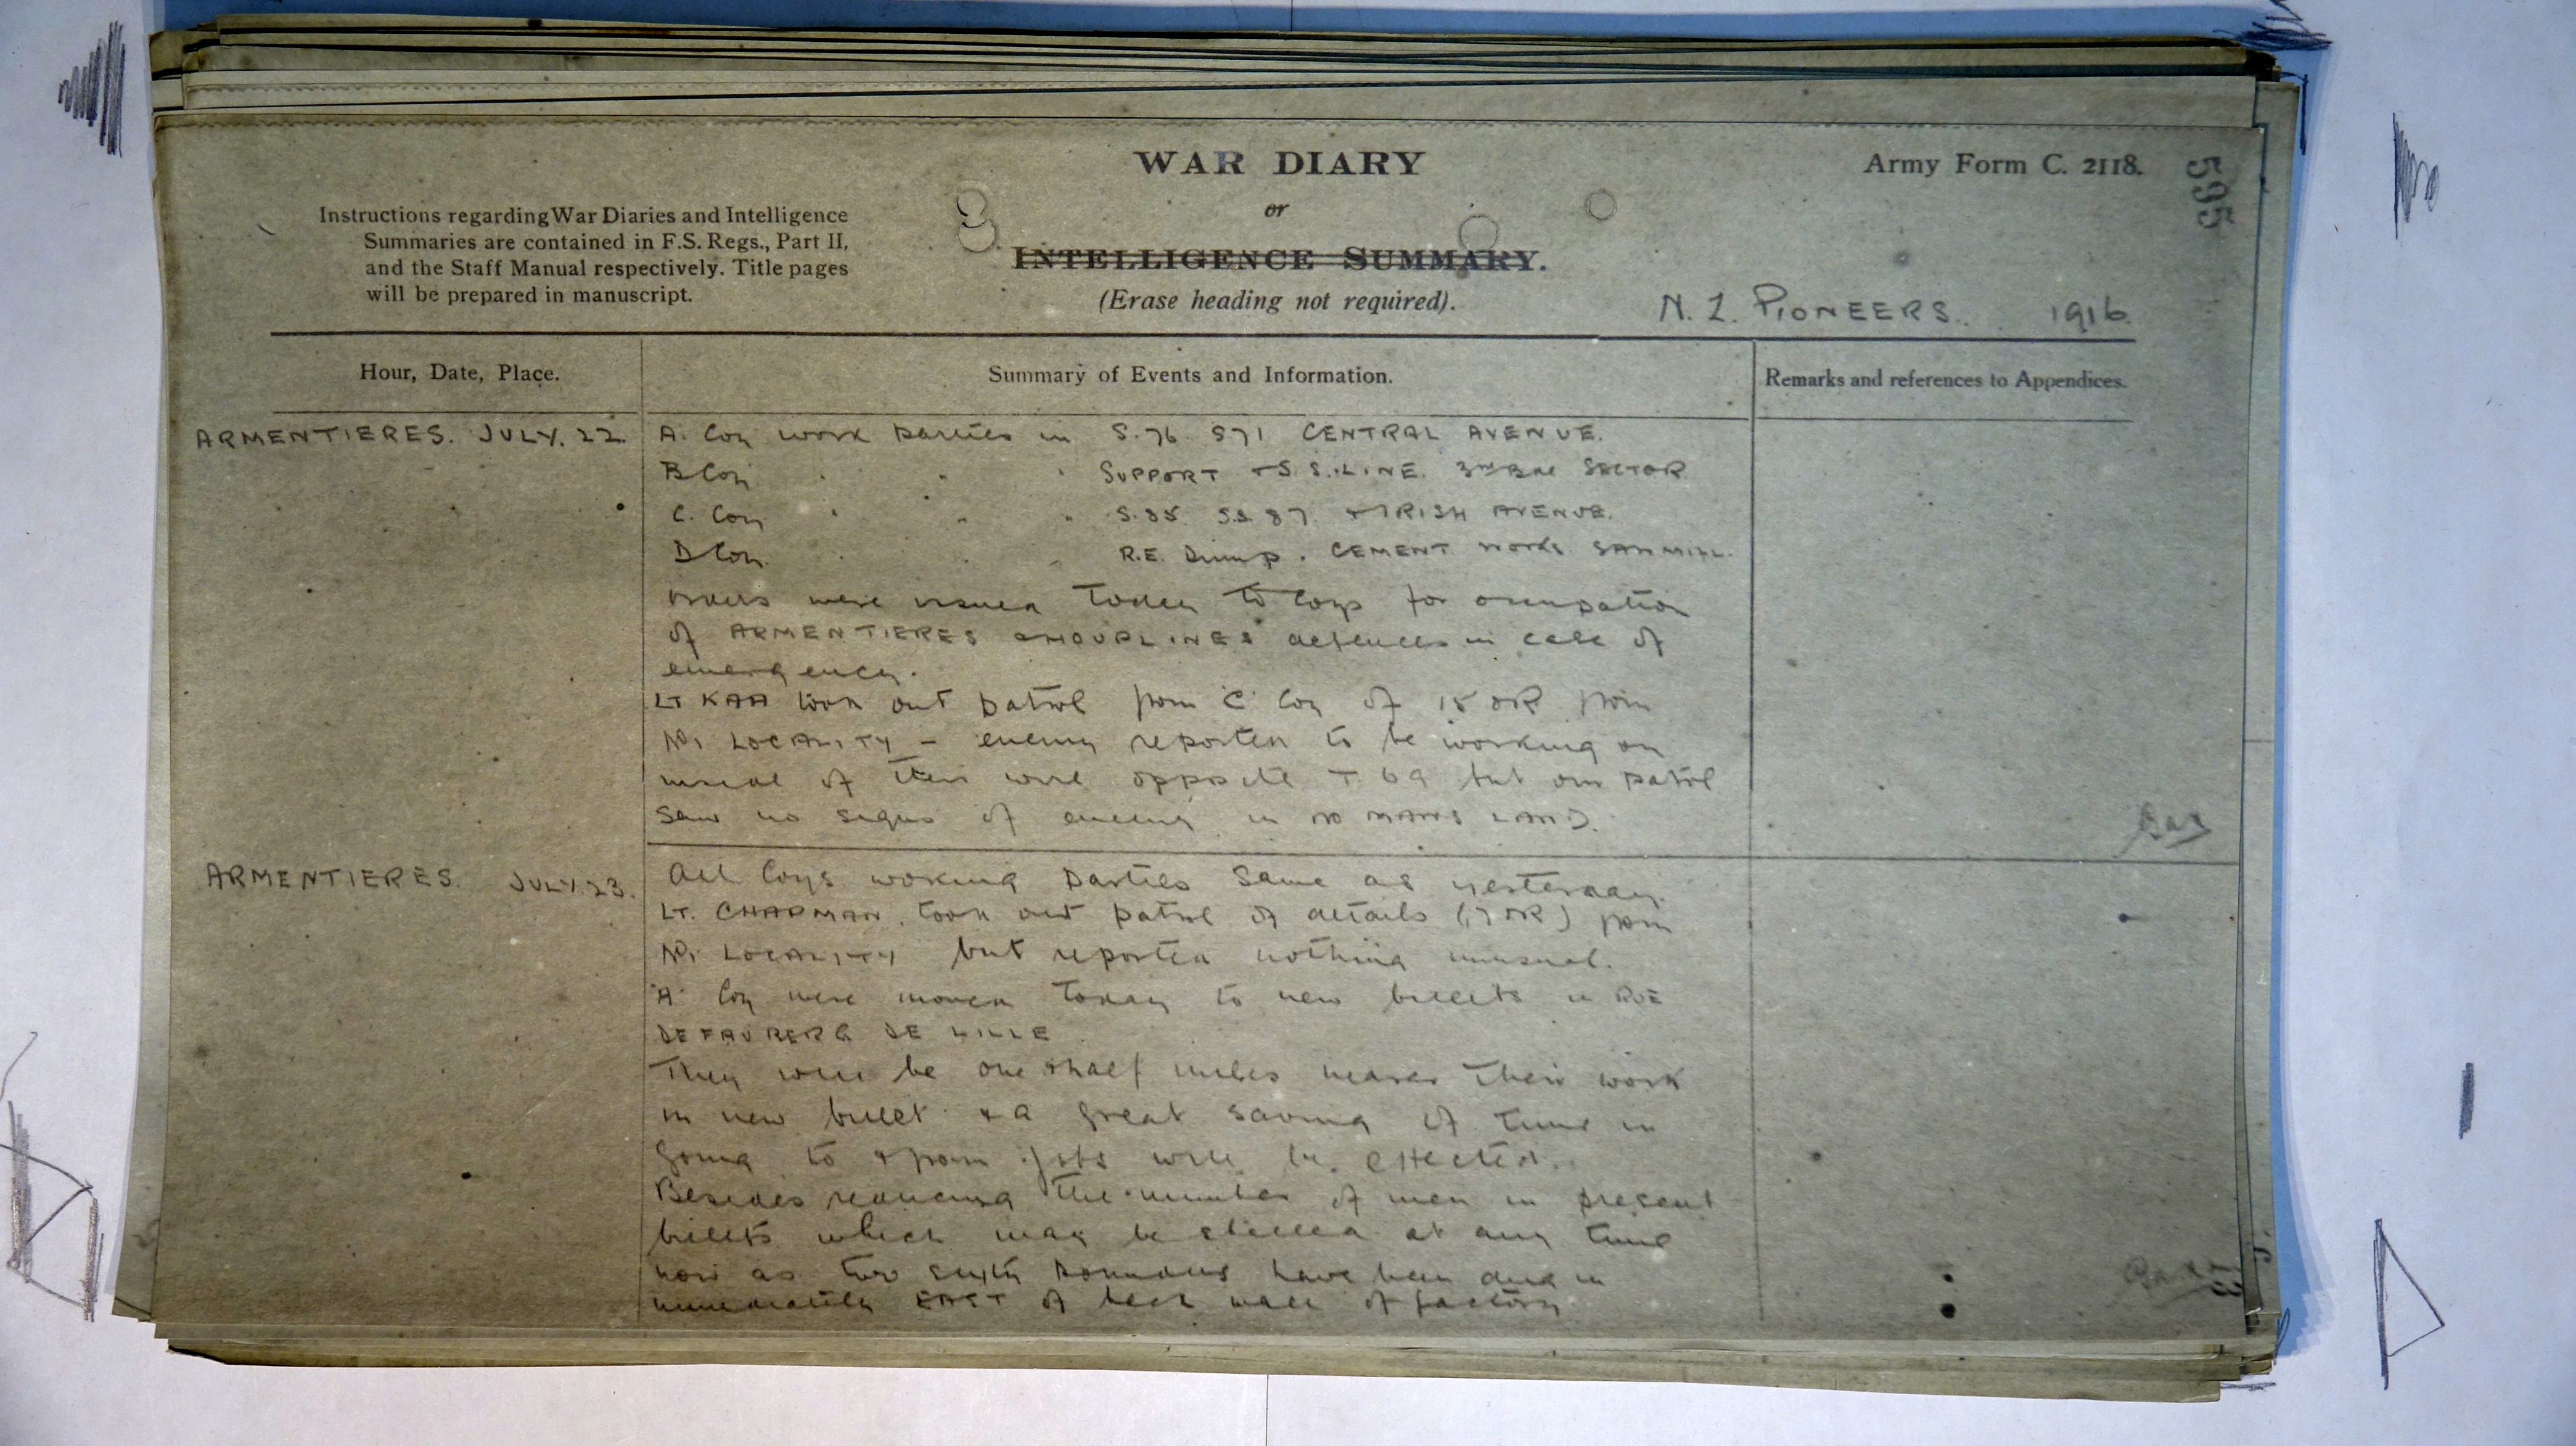 WAR DIARY
or
INTELLIGENCE SUMMARY.
(Erase heading not required).
Army Form C. 2118.
595
Instructions regarding War Diaries and Intelligence
Summaries are contained in F.S. Regs., Part II,
and the Staff Manual respectively. Title pages
will be prepared in manuscript.
N. Z. PIONEERS. 1916.
Hour, Date, Place.
Summary of Events and Information.
Remarks and references to Appendices.
ARMENTIERES. JULY. 22.
A. Coy work parties in S.76 S71 CENTRAL AVENUE.
B Coy " " " SUPPORT + S.S. LINE. 3rd Bde SECTOR
C. Coy " " " S.85. S.S 87. + IRISH AVENUE.
D Coy " " " R.E. Dump. CEMENT works SAWMILL.
Orders were issued today to Coys for occupation
of ARMENTIERES & HOUPLINES defences in case of
emergency.
LT KAA took out patrol from 'C' Coy of 15 OR from
No 1 LOCALITY - enemy reported to be working on
of their wire opposite T 69 but our patrol
saw no signs of enemy in NO MANS LAND.
ARMENTIERES. JULY. 23.
All Coys working parties same as yesterday.
LT. CHAPMAN. took out patrol of details (17 OR) from
No 1 LOCALITY but reported nothing unusual.
'A' Coy were moved today to new billets in RUE
DE FAUBERG DE LILLE
They will be one & half miles nearer their work
in new billet & a great saving of time in
going to & from jobs will be effected.
Besides reducing the number of men in present
billets which may be shelled at any time
now as two sixty pounders have been dug in
immediately EAST of back wall of factory